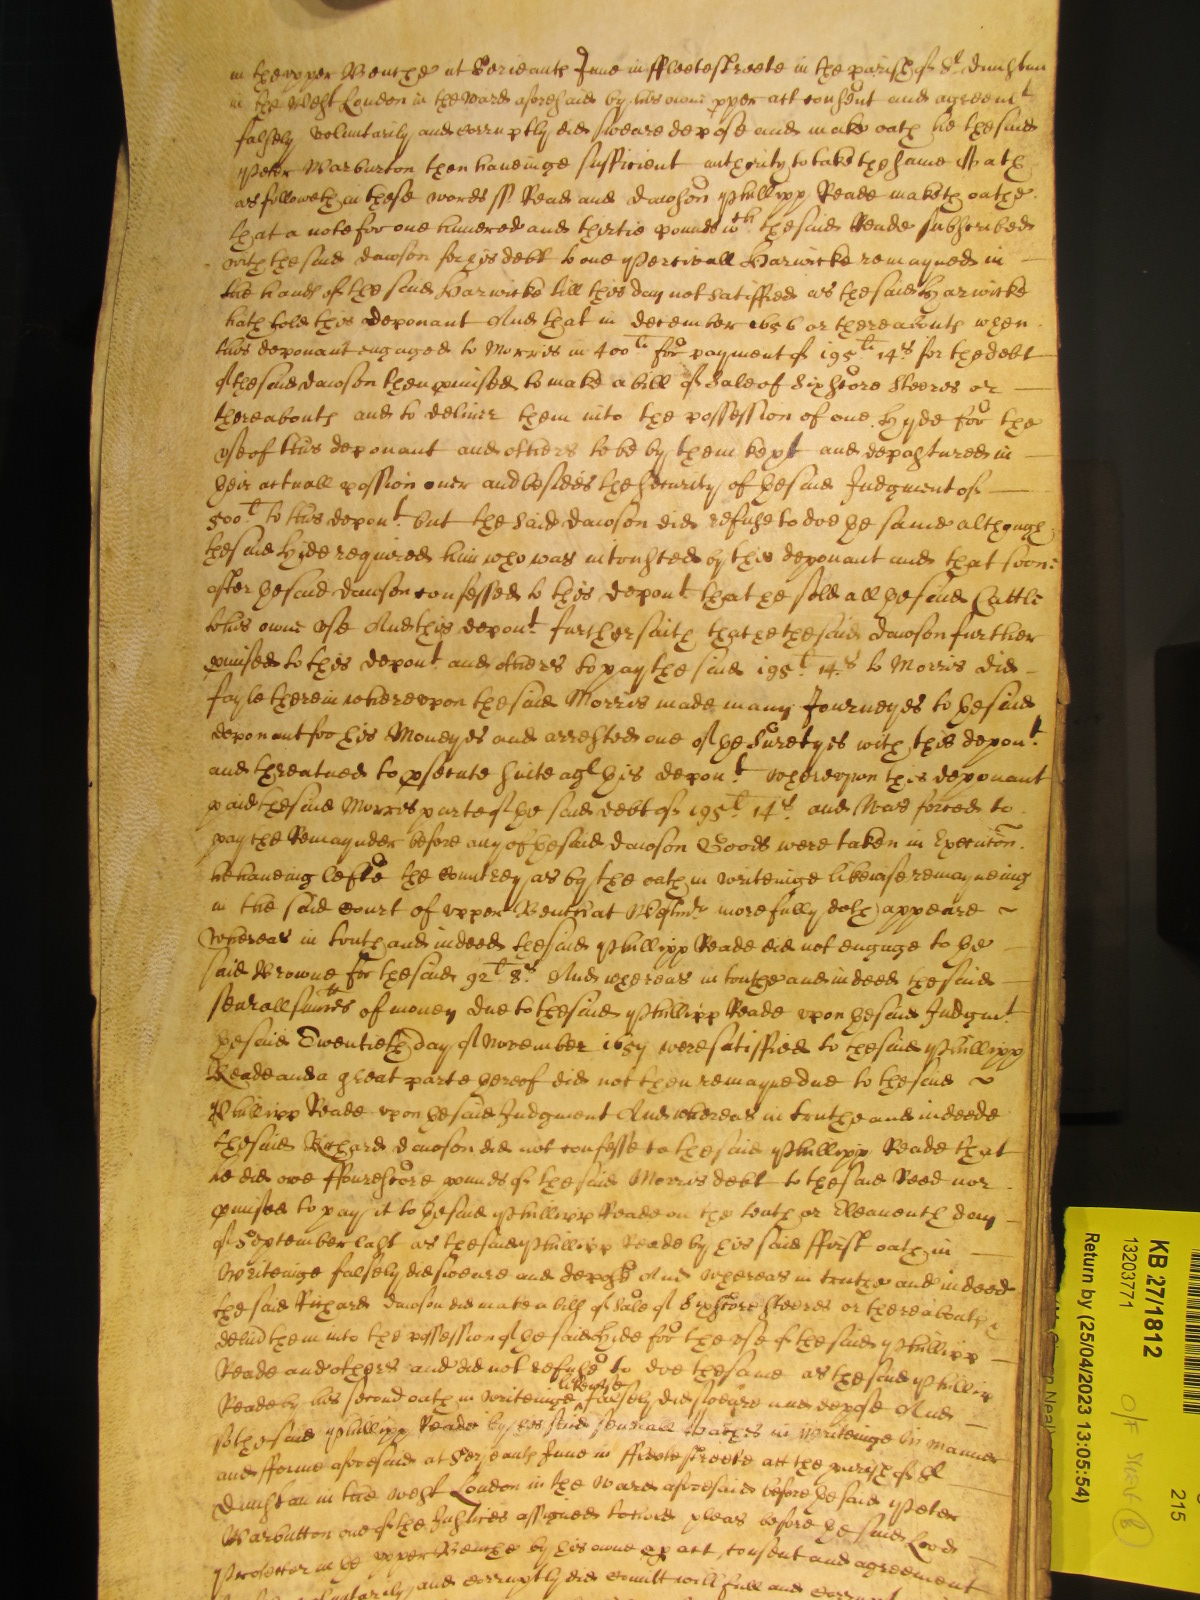 in the vpper Benche at Serieants Inne in ffleetestreete in the parish of St. Dunstan
in the West London in the ward aforesaid by his owne pper act consent and agreemt
falsely voluntarily and corruptly did sweare depose and make oath he the said
Peter Warburton then haueinge sufficient authority to take the same Oath
as followeth in these words Read and Dawson Phillipp Reade maketh oathe
that a note for one hundred and thirtie pounds wth. the said Reade subscribed
with the said Dawson for his debt to one Percivall Harwicke remayned in
the hands of the said Harwicke till this day not satisfied as the said Harwicke
hath told this deponant And that in december 1656 or thereabouts when
this deponant engaged to Morris in 400li for payment of 195li 14s for the debt
of the said dawson then pmised to make a bill of Sale of Sixscore Steeres or
thereabouts and to deliuer them into the possession of one Hyde for the
vse of this deponant and others to be by them kept and depastured in
their actuall possion ouer and besides the security of he said Judgment of
500l. to this depont. but the said dawson did refuse to doe he same although
the said Hyde required him who was intrusted by this deponant and that soone
after he said dawson confessed to this depont that he sold all he said Cattle
to his owne vse And this depont. further saith that he the said dawson further
pmised to this depont. and others to pay the said 195l. 14s to Morris did
fayle therein wherevpon the said Morris made many Journeyes to he said
deponant for his Moneyes and arrested one of he suretyes with this depont.
and threatned to psecute suite agt his depont. Wherevpon this deponant
paid the said Morris parte of he said debt of 195l. 14s. and Was forced to
pay the Remaynder before any of he said dawson Goods were taken in Execution
he haueing lefte the countrey as by the oath in writeinge likewise remayneing
in the said Court of vpper Bench at Westmr. more fully doth appeare
Whereas in truth and indeed the said Phillipp Reade did not engage to he
said Browne for the said 92l. 8s. And whereas in truthe and indeed the said
seuerall summes of money due to the said Phillipp Reade vpon he said Judgmt
he said Twentieth day of Nouember 1657 were satisfied to the said Phillipp
Reade and a great parte hereof did not then remayne due to the said
Phillipp Reade vpon he said Judgment And whereas in truthe and indeede
the said Richard dawson did not confesse to the said Phillipp Reade that
he did owe ffourescore pounds of the said Morris debt to the said Reed nor
pmised to pay it to he said Phillipp Reade on the tenth or Eleauenth day
of September last as the said Phillipp Reade by his said ffirst oath in
Writeinge falsely did sweare and depose And Whereas in truthe and indeed
the said Richard dawson did make a bill of Sale of Sixscore Steeres or thereabouts
deliud them into the possession of he said Hyde for the vse of the said Phillipp
Reade and others and did not refuse to doe the same as the said Phillip
Reade by his second oath in writeinge likewise falsely did sweare and depose And
so the said Phillipp Reade by his said seuerall Oathes in Writeinge in manner
and fforme aforesaid at Serjeants Inne in ffleetestreete att the parish of St
Dunstan in the West London in the Ward aforesaid before he said Peter
Warbutton one of the Justices assigned to hold pleas before he said Lord
Protector in he vpper Benche by his owne pp act, consent and agreement
voluntarily and corruptly did comitt willfull and corrupt
KB 27/1812
13203771
Return by (25/04/2023 13:05:54)
215